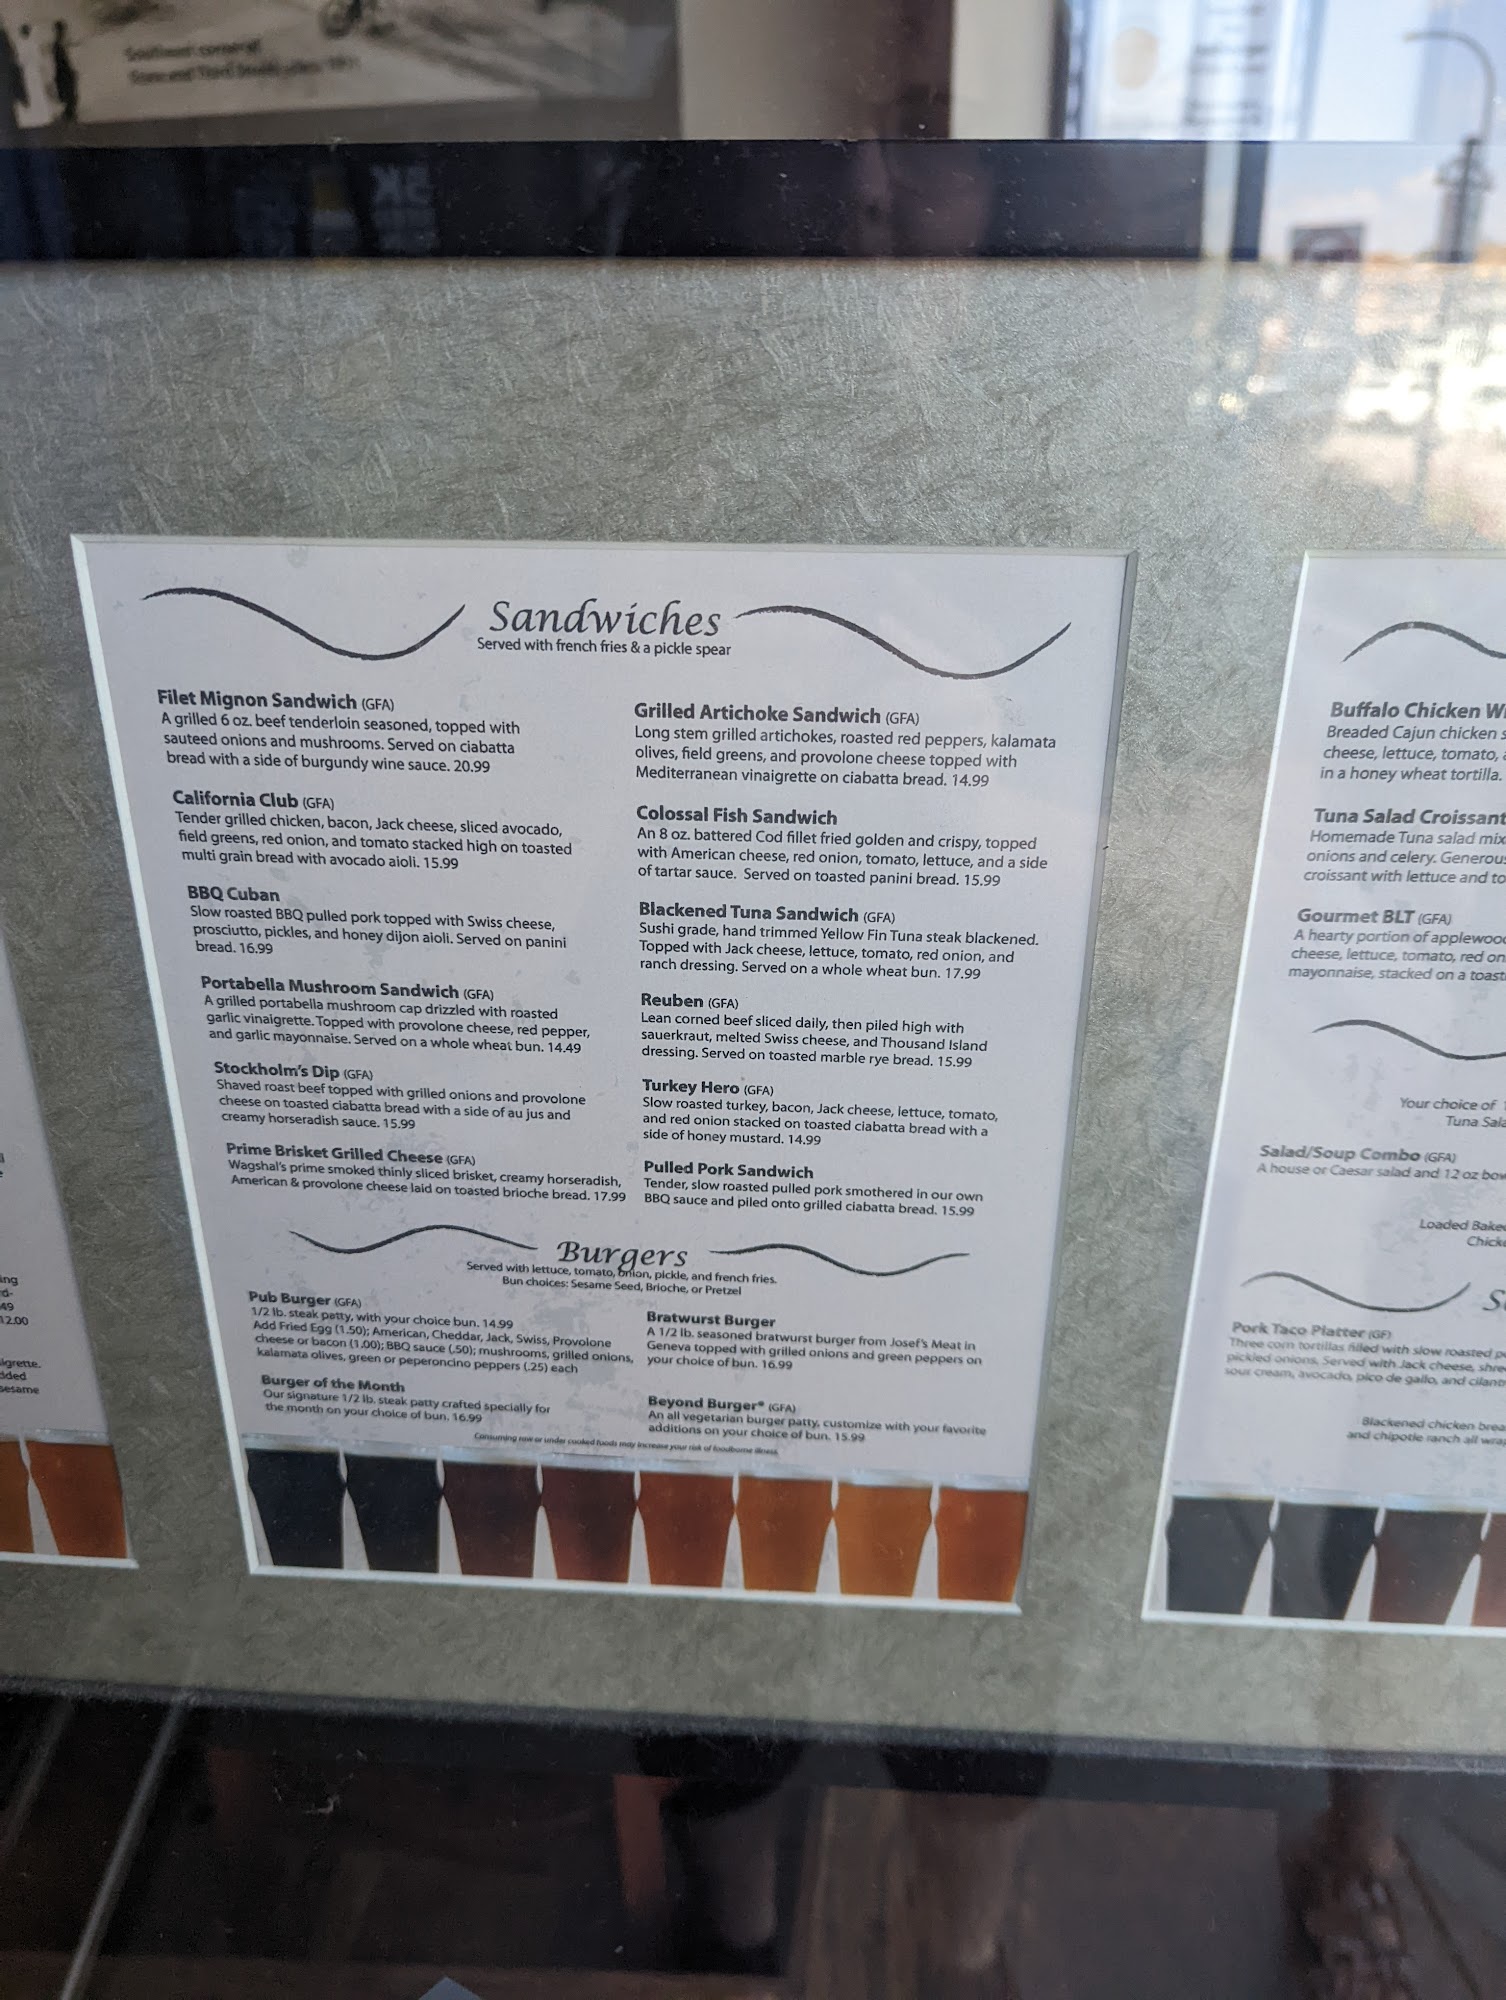 Southeast corner of
Sandwiches
Served with french fries & a pickle spear
Filet Mignon Sandwich (GFA)
A grilled 6 oz. beef tenderloin seasoned, topped with
sauteed onions and mushrooms. Served on ciabatta
bread with a side of burgundy wine sauce. 20.99
California Club (GFA)
Tender grilled chicken, bacon, Jack cheese, sliced avocado,
field greens, red onion, and tomato stacked high on toasted
multi grain bread with avocado aioli. 15.99
BBQ Cuban
Slow roasted BBQ pulled pork topped with Swiss cheese,
prosciutto, pickles, and honey dijon aioli. Served on panini
bread. 16.99
Portabella Mushroom Sandwich (GFA)
A grilled portabella mushroom cap drizzled with roasted
garlic vinaigrette. Topped with provolone cheese, red pepper,
and garlic mayonnaise. Served on a whole wheat bun. 14.49
Stockholm's Dip (GFA)
Shaved roast beef topped with grilled onions and provolone
cheese on toasted ciabatta bread with a side of au jus and
creamy horseradish sauce. 15.99
Prime Brisket Grilled Cheese (GFA)
Wagshal's prime smoked thinly sliced brisket, creamy horseradish,
American & provolone cheese laid on toasted brioche bread. 17.99
Grilled Artichoke Sandwich (GFA)
Long stem grilled artichokes, roasted red peppers, kalamata
olives, field greens, and provolone cheese topped with
Mediterranean vinaigrette on ciabatta bread. 14.99
Colossal Fish Sandwich
An 8 oz. battered Cod fillet fried golden and crispy, topped
with American cheese, red onion, tomato, lettuce, and a side
of tartar sauce. Served on toasted panini bread. 15.99
Blackened Tuna Sandwich (GFA)
Sushi grade, hand trimmed Yellow Fin Tuna steak blackened.
Topped with Jack cheese, lettuce, tomato, red onion, and
ranch dressing. Served on a whole wheat bun. 17.99
Reuben (GFA)
Lean corned beef sliced daily, then piled high with
sauerkraut, melted Swiss cheese, and Thousand Island
dressing. Served on toasted marble rye bread. 15.99
Turkey Hero (GFA)
Slow roasted turkey, bacon, Jack cheese, lettuce, tomato,
and red onion stacked on toasted ciabatta bread with a
side of honey mustard. 14.99
Pulled Pork Sandwich
Tender, slow roasted pulled pork smothered in our own
BBQ sauce and piled onto grilled ciabatta bread. 15.99
Burgers
Served with lettuce, tomato, onion, pickle, and french fries.
Bun choices: Sesame Seed, Brioche, or Pretzel
Pub Burger (GFA)
1/2 lb. steak patty, with your choice bun. 14.99
Add Fried Egg (1.50); American, Cheddar, Jack, Swiss, Provolone
cheese or bacon (1.00); BBQ sauce (.50); mushrooms, grilled onions,
kalamata olives, green or peperoncino peppers (.25) each
Burger of the Month
Our signature 1/2 lb. steak patty crafted specially for
the month on your choice of bun. 16.99
Bratwurst Burger
A 1/2 lb. seasoned bratwurst burger from Josef's Meat in
Geneva topped with grilled onions and green peppers on
your choice of bun. 16.99
Beyond Burger* (GFA)
An all vegetarian burger patty, customize with your favorite
additions on your choice of bun. 15.99
Consuming raw or under cooked foods may increase your risk of foodborne illness.
Buffalo Chicken
Breaded Cajun chicken
cheese, lettuce, tomato,
in a honey wheat tortilla.
Tuna Salad Croissant
Homemade Tuna salad
onions and celery.
croissant with lettuce and
Gourmet BLT (GFA)
A hearty portion of
cheese, lettuce, tomato, red
mayonnaise, stacked on a
Your choice of
Tuna
Salad/Soup Combo (GFA)
A house or Caesar salad and 12 oz
Loaded
Pork Taco Platter (GF)
Three corn tortillas filled with slow roasted
pickled onions, Served with Jack cheese,
sour cream, avocado, pico de gallo, and
Blackened chicken
and chipotle ranch all
49
12.00
sesame